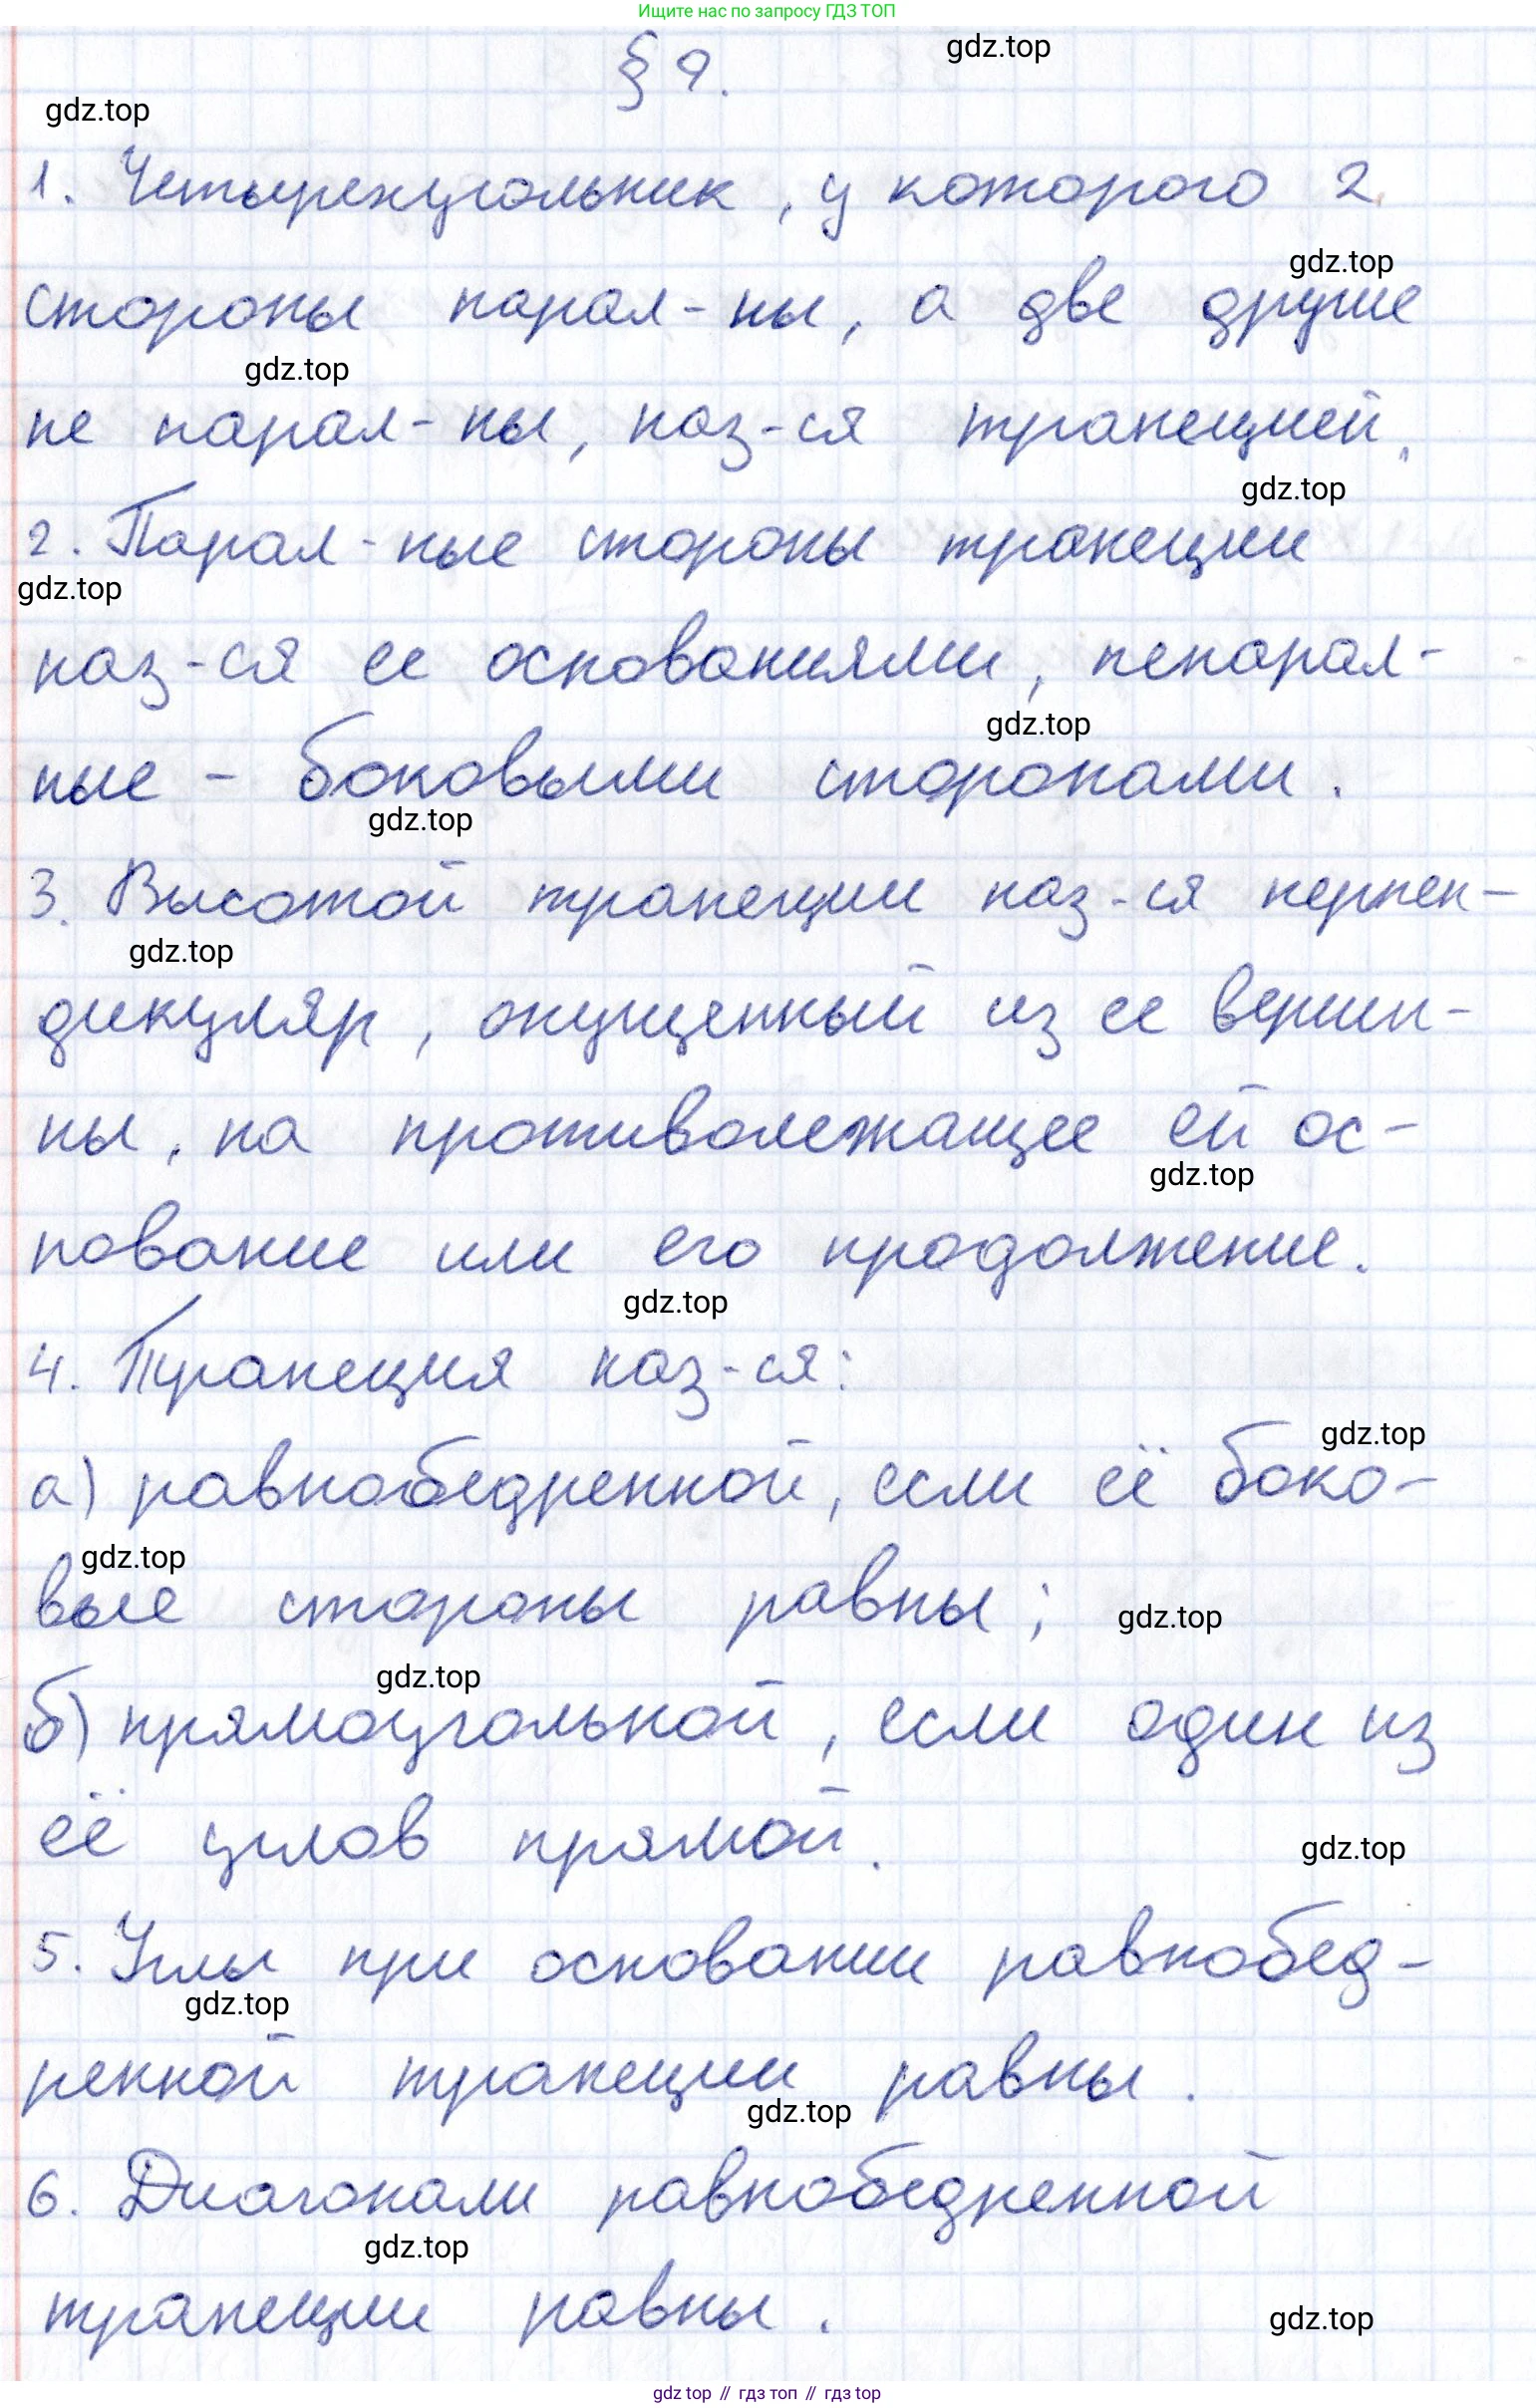 Ищите нас по запросу ГДЗ ТОП
§ 9.
gdz.top
gdz.top
1. Четырехугольник, у которого 2
gdz.top
стороны парал-ны, а две другие
gdz.top
не парал-ны, наз-ся трапецией.
gdz.top
2. Парал-ные стороны трапеции
gdz.top
наз-ся ее основаниями, непарал-
gdz.top
ные - боковыми сторонами.
gdz.top
3. Высотой трапеции наз-ся перпен-
gdz.top
дикуляр, опущенный из ее верши-
ны, на противолежащее ей ос-
gdz.top
нование или его продолжение.
gdz.top
4. Трапеция наз-ся:
gdz.top
а) равнобедренной, если её боко-
gdz.top
вые стороны равны;
gdz.top
gdz.top
б) прямоугольной, если один из
её углов прямой.
gdz.top
5. Углы при основании равнобед-
gdz.top
ренной трапеции равны.
gdz.top
6. Диагонали равнобедренной
gdz.top
трапеции равны.
gdz.top
gdz top // гдз топ // гдз top